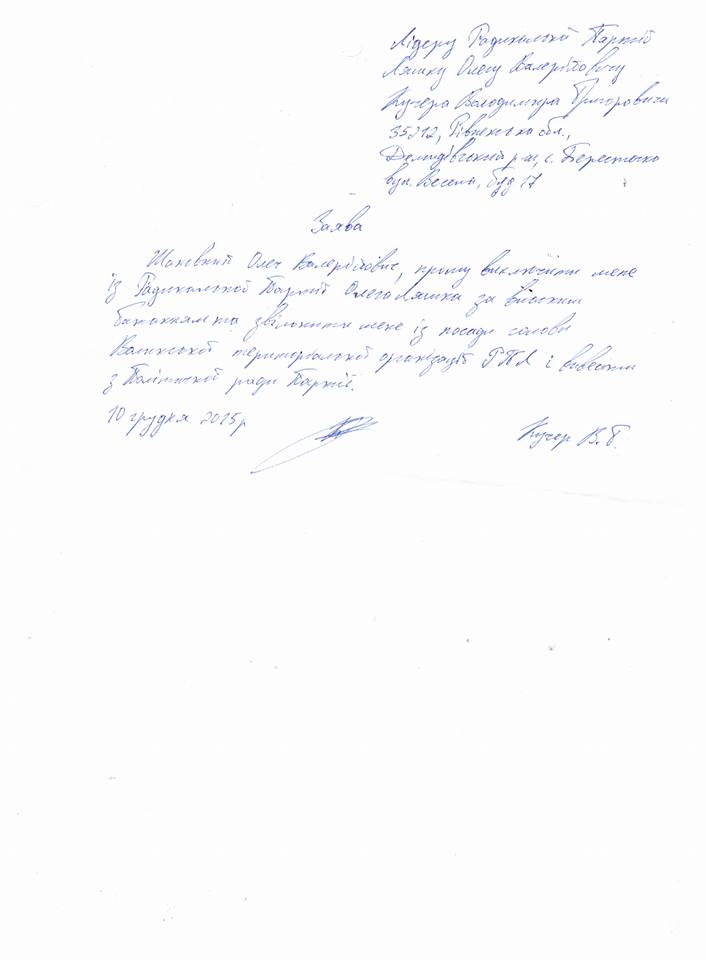 Лідеру Радикальної Партії
Ляшку Олегу Валерійовичу
Кучера Володимира Григоровича
35212, Рівненська обл.,
Демидівський р-н, с. Берестечко
вул. Весела, буд. 17
Заява
Шановний Олег Валерійович, прошу виключити мене
із Радикальної Партії Олега Ляшка за власним
бажанням та звільнити мене із посади голови
Волинської територіальної організації РПЛ і вивести
з Політичної ради Партії.
10 грудня 2015р
Кучер В.Г.